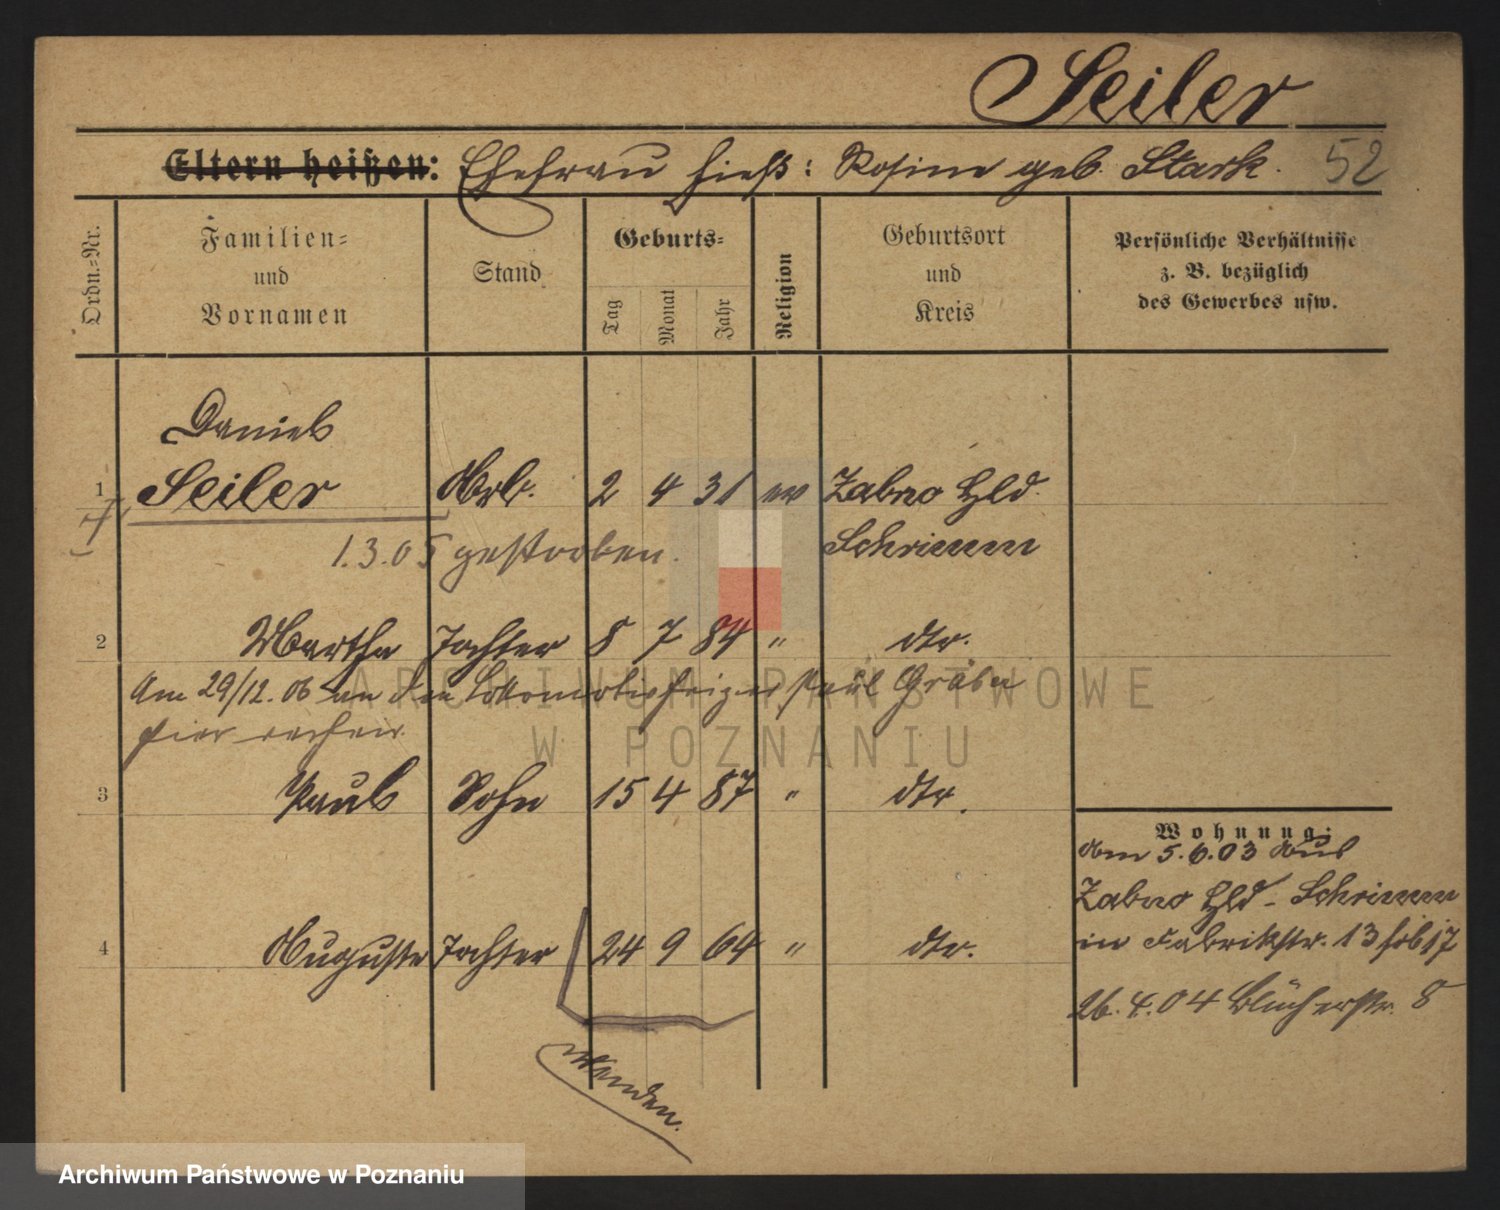 Seiler
Eltern heißen: Ehefrau hieß: Rosine geb. Stark. 52
Ordn.-Nr.
Familien-
und
Vornamen
Stand
Geburts-
Tag
Monat
Jahr
Religion
Geburtsort
und
Kreis
Persönliche Verhältnisse
z. B. bezüglich
des Gewerbes usw.
Daniel
1 Seiler Arb. 2 4 31 ev Zabno Hld.
1.3.05 gestorben. Schrimm
2 Martha Tochter 8 7 84 " dto.
Am 29/12. 06 an den Lokomotivheizer Paul
hier
3 Paul Sohn 15 4 87 " dto.
4 Auguste Tochter 24 9 64 " dto.
Wohnung:
Am 5.6.03 aus
Zabno Hld - Schrimm
in Fabrikstr. 13
26.4.04 Blücherstr. 8
Wenden.
ARCHIWUM PAŃSTWOWE
W POZNANIU
Archiwum Państwowe w Poznaniu